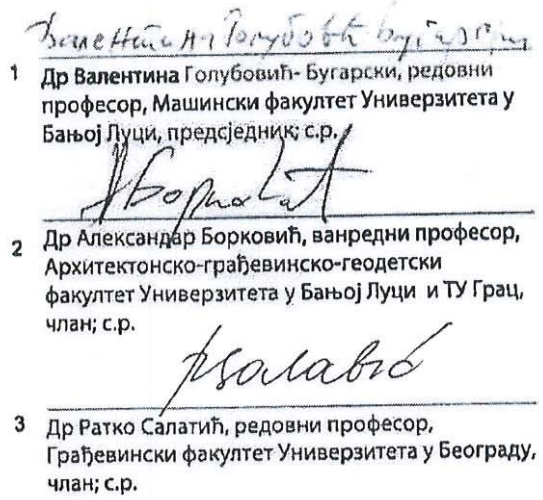 Валентина Голубовић Бугарски
1 Др Валентина Голубовић- Бугарски, редовни
професор, Машински факултет Универзитета у
Бањој Луци, предсједник; с.р.
АБорковић
2 Др Александар Борковић, ванредни професор,
Архитектонско-грађевинско-геодетски
факултет Универзитета у Бањој Луци и ТУ Грац,
члан; с.р.
3 Др Ратко Салатић, редовни професор,
Грађевински факултет Универзитета у Београду,
члан; с.р.